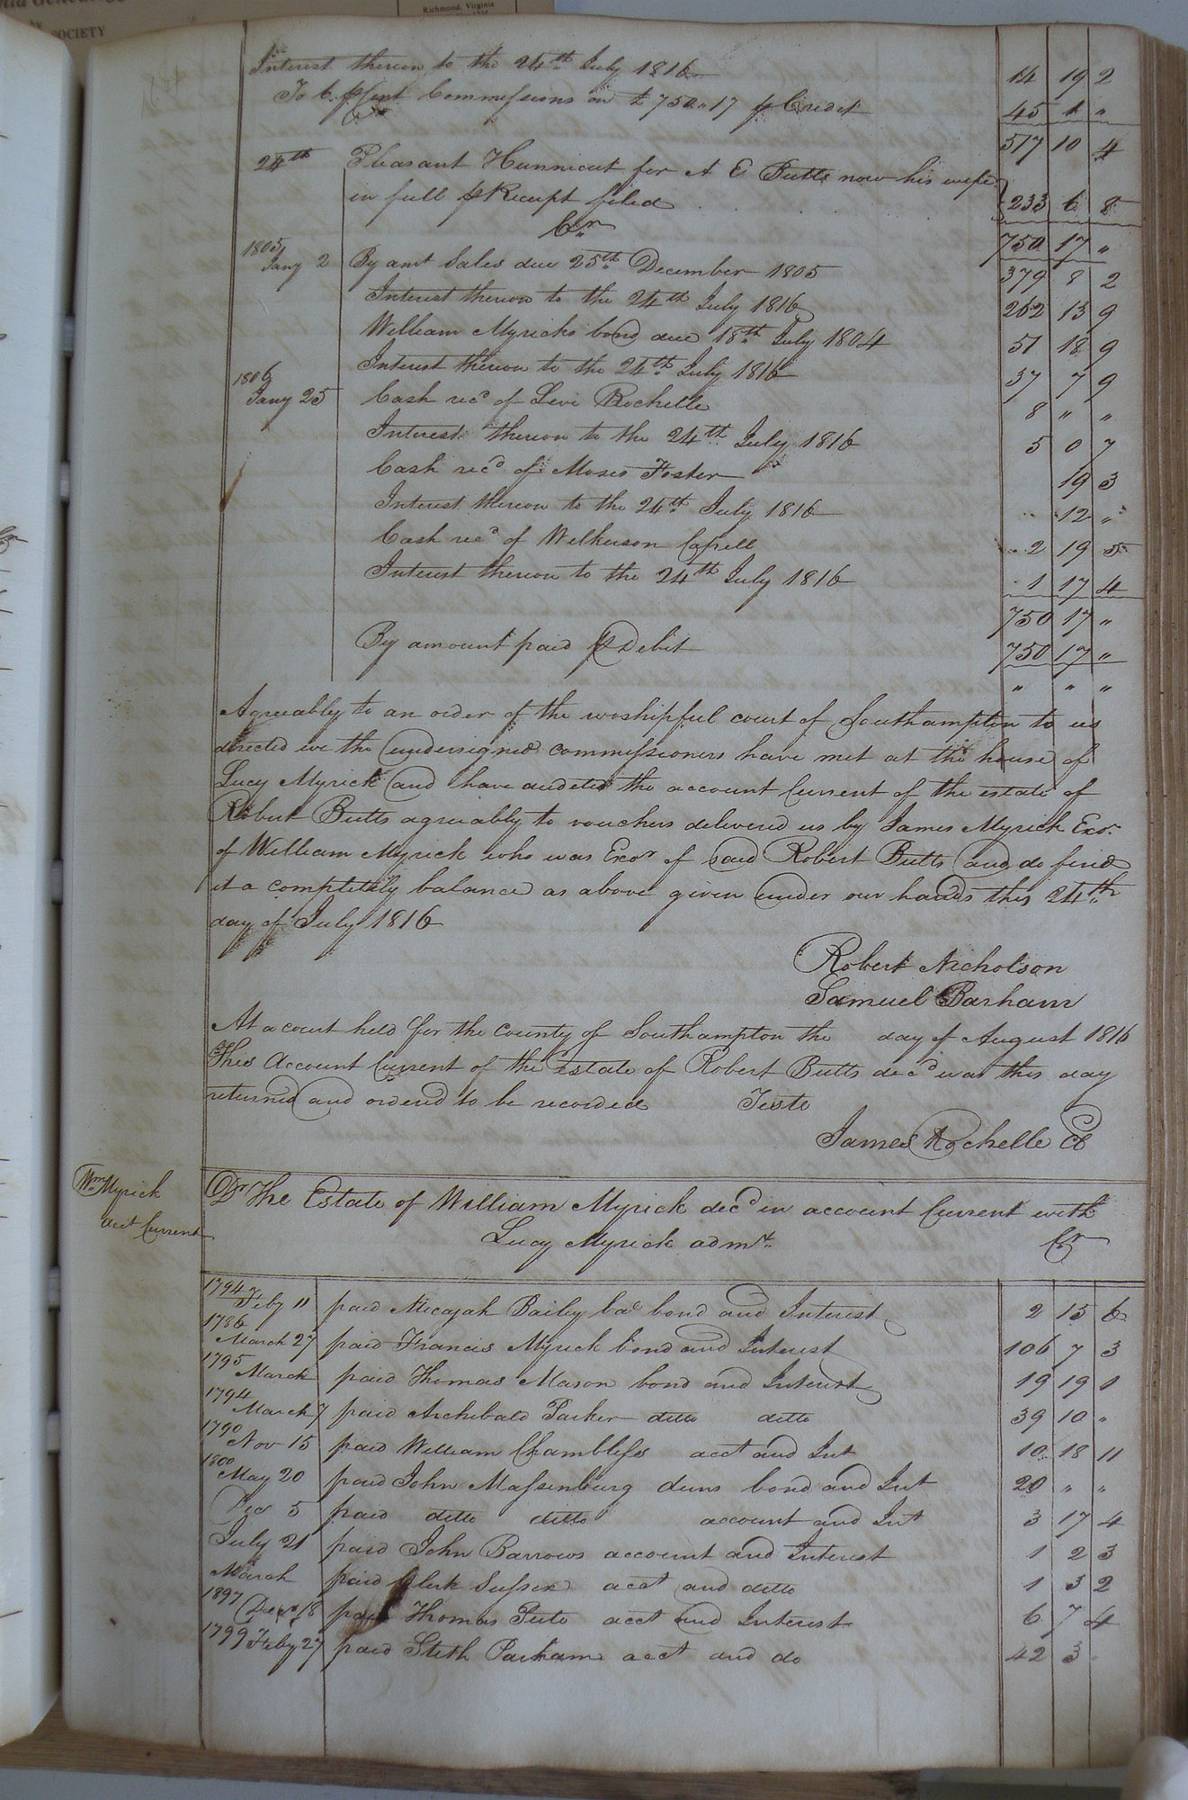 SOCIETY
Richmond, Virginia
Interest thereon to the 24th July 1816 14 19 2
To 6 pCent Commissions on £750..17 p Credit 45 1 "
517 10 4
24th Pleasant Hunnicut for A E Butts now his wife
in full p Receipt filed 233 6 8
Cr 750 17 "
1805
Jany 2 By amt Sales due 25th December 1805 379 8 2
Interest thereon to the 24th July 1816 262 13 9
William Myricks bond due 18th July 1804 51 18 9
Interest thereon to the 24th July 1816 37 7 9
1806
Jany 25 Cash recd of Levi Rochelle 8 " "
Interest thereon to the 24th July 1816 5 0 7
Cash recd of Moses Foster 19 3
Interest thereon to the 24th July 1816 12 "
Cash recd of Wilkerson Capell 2 19 5
Interest thereon to the 24th July 1816 1 17 4
750 17 "
By amount paid p Debit 750 17 "
" " "
Agreeably to an order of the worshipful court of Southampton to us
directed we the undersigned commissioners have met at the house of
Lucy Myrick and have audeted the account Current of the estate of
Robert Butts agreeably to vouchers delivered us by James Myrick Exor
of William Myrick who was Exor of said Robert Butts and do find
it a completely balance as above given under our hands this 24th
day of July 1816
Robert Nicholson
Samuel Barham
At a court held for the county of Southampton the day of August 1816
This Account Current of the Estate of Robert Butts decd was this day
returned and ordered to be recorded Teste
James Rochelle Ck
Wm Myrick
acct Current
Dr The Estate of William Myrick decd in account Current with
Lucy Myrick admx Cr
1794
Feby 11 paid Micajah Bailey bal bond and Interest 2 15 6
1786
March 27 paid Francis Myrick bond and Interest 106 7 3
1795
March paid Thomas Mason bond and Interest 19 19 1
1794
March 7 paid Archibald Parker ditto ditto 39 10 "
1790
Nov 15 paid William Chambless acct and Int 10 18 11
1800
May 20 paid John Massenburg duns bond and Int 20 " "
Dec 5 paid ditto ditto account and Int 3 17 4
July 21 paid John Barrows account and Interest 1 2 3
March paid Clerk Sussex acct and ditto 1 3 2
1897
Decr 18 paid Thomas Pete acct and Interest 6 7 4
1799 Feby 27 paid Stith Parham acct and do 42 3